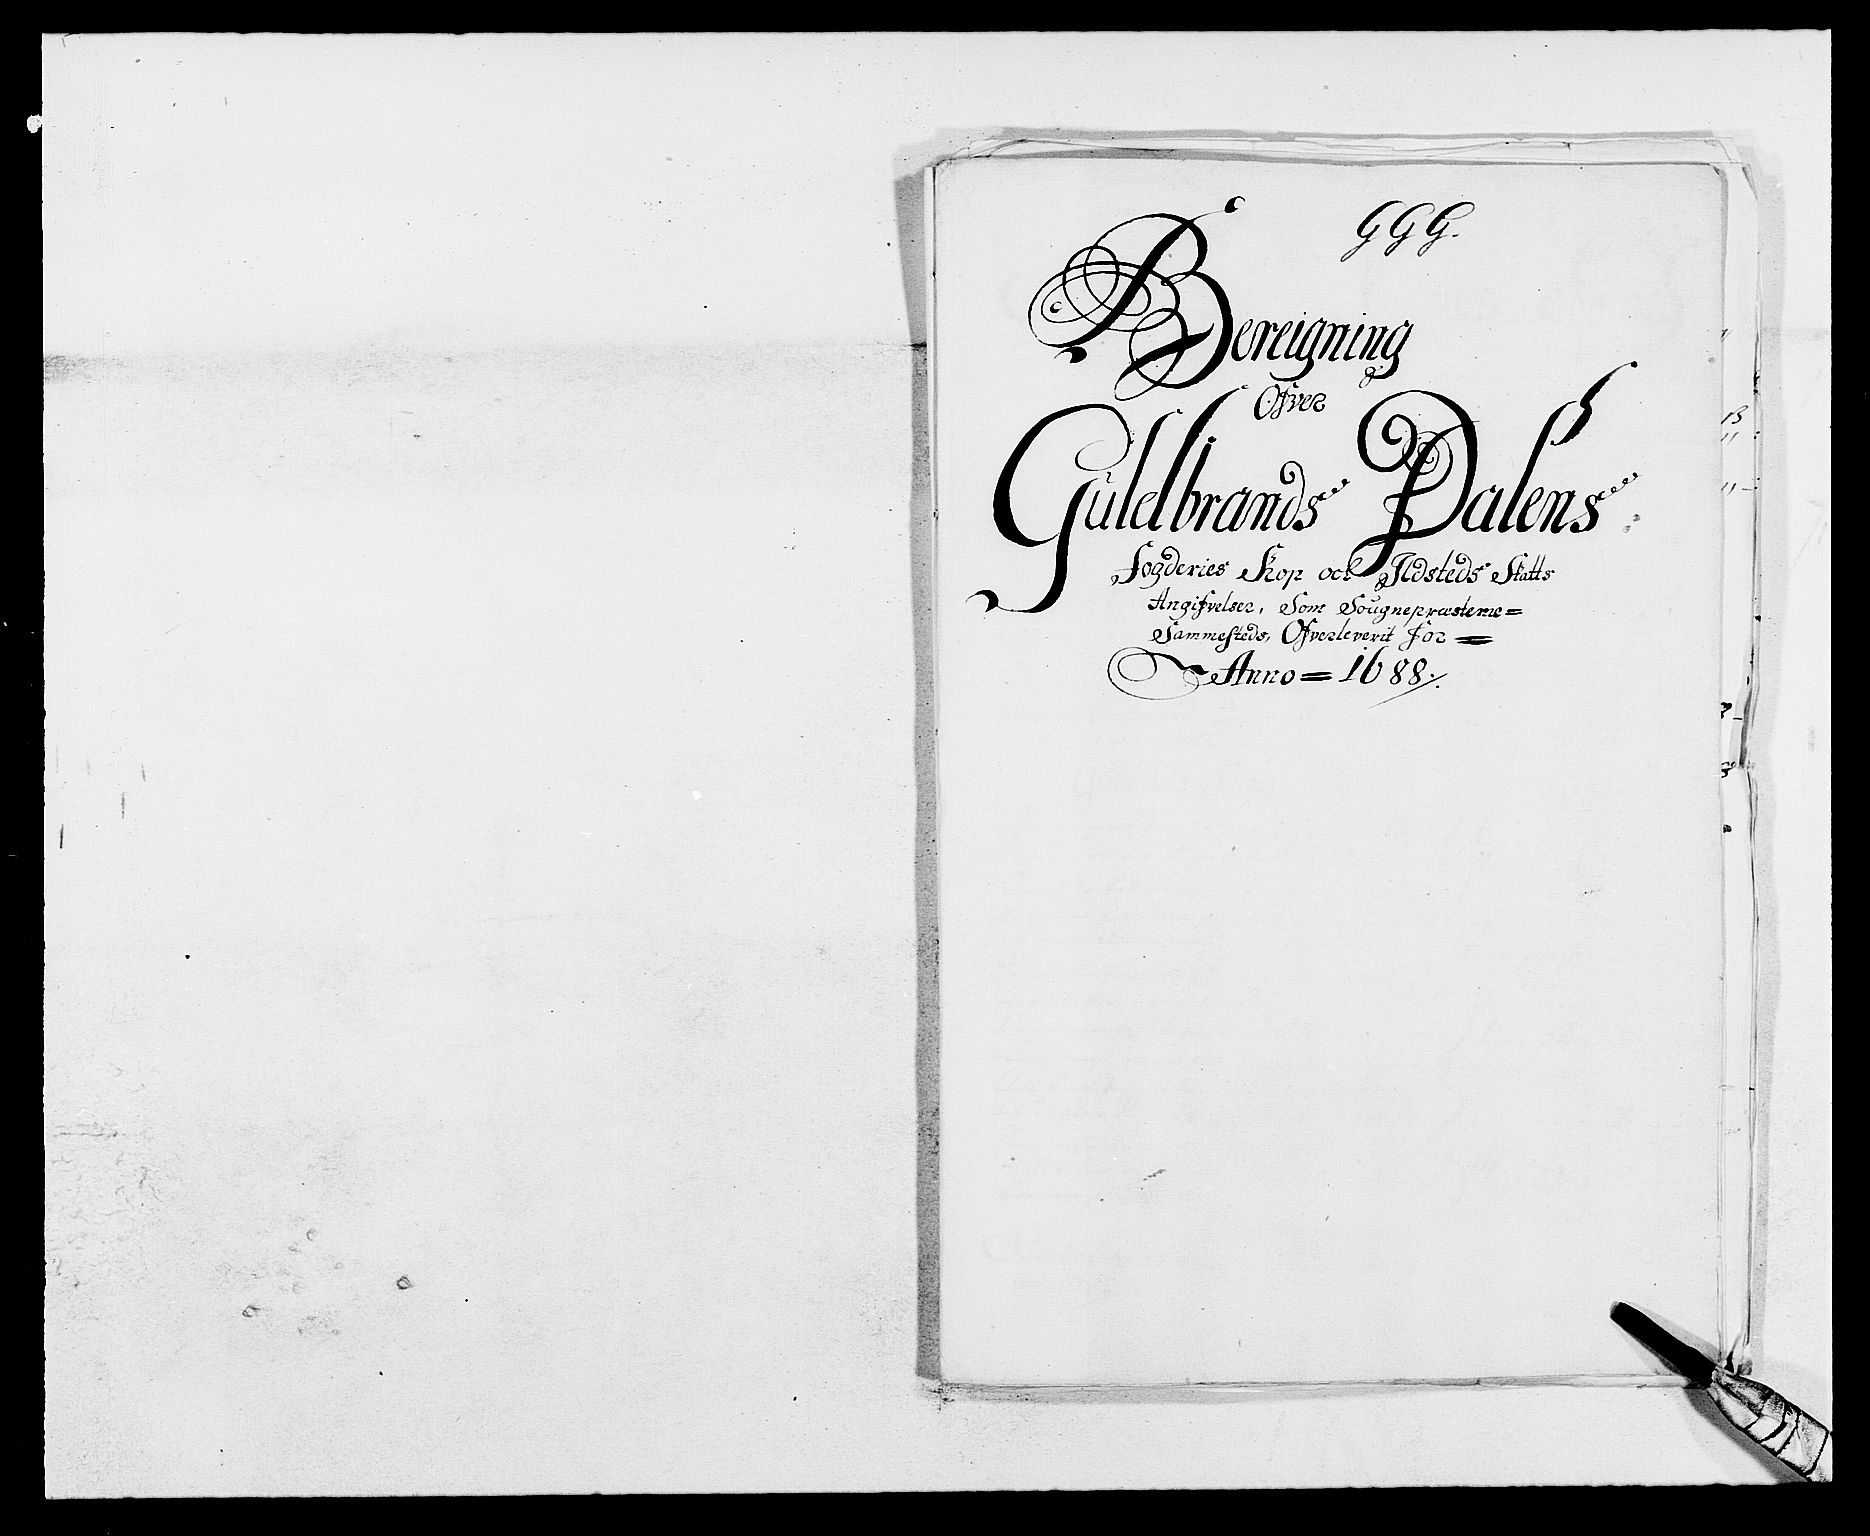 GGG.
Bereigning
Ofver
Guldbrands Dalens
Fogderies Kop och Ildsteds Skatts
Angifvelser, Som Sougnepræsterne=
Sammesteds, Ofverleverit for =
Anno = 1688./.